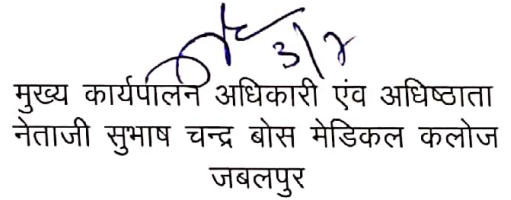 3/7
मुख्य कार्यपालन अधिकारी एंव अधिष्ठाता
नेताजी सुभाष चन्द्र बोस मेडिकल कलोज
जबलपुर